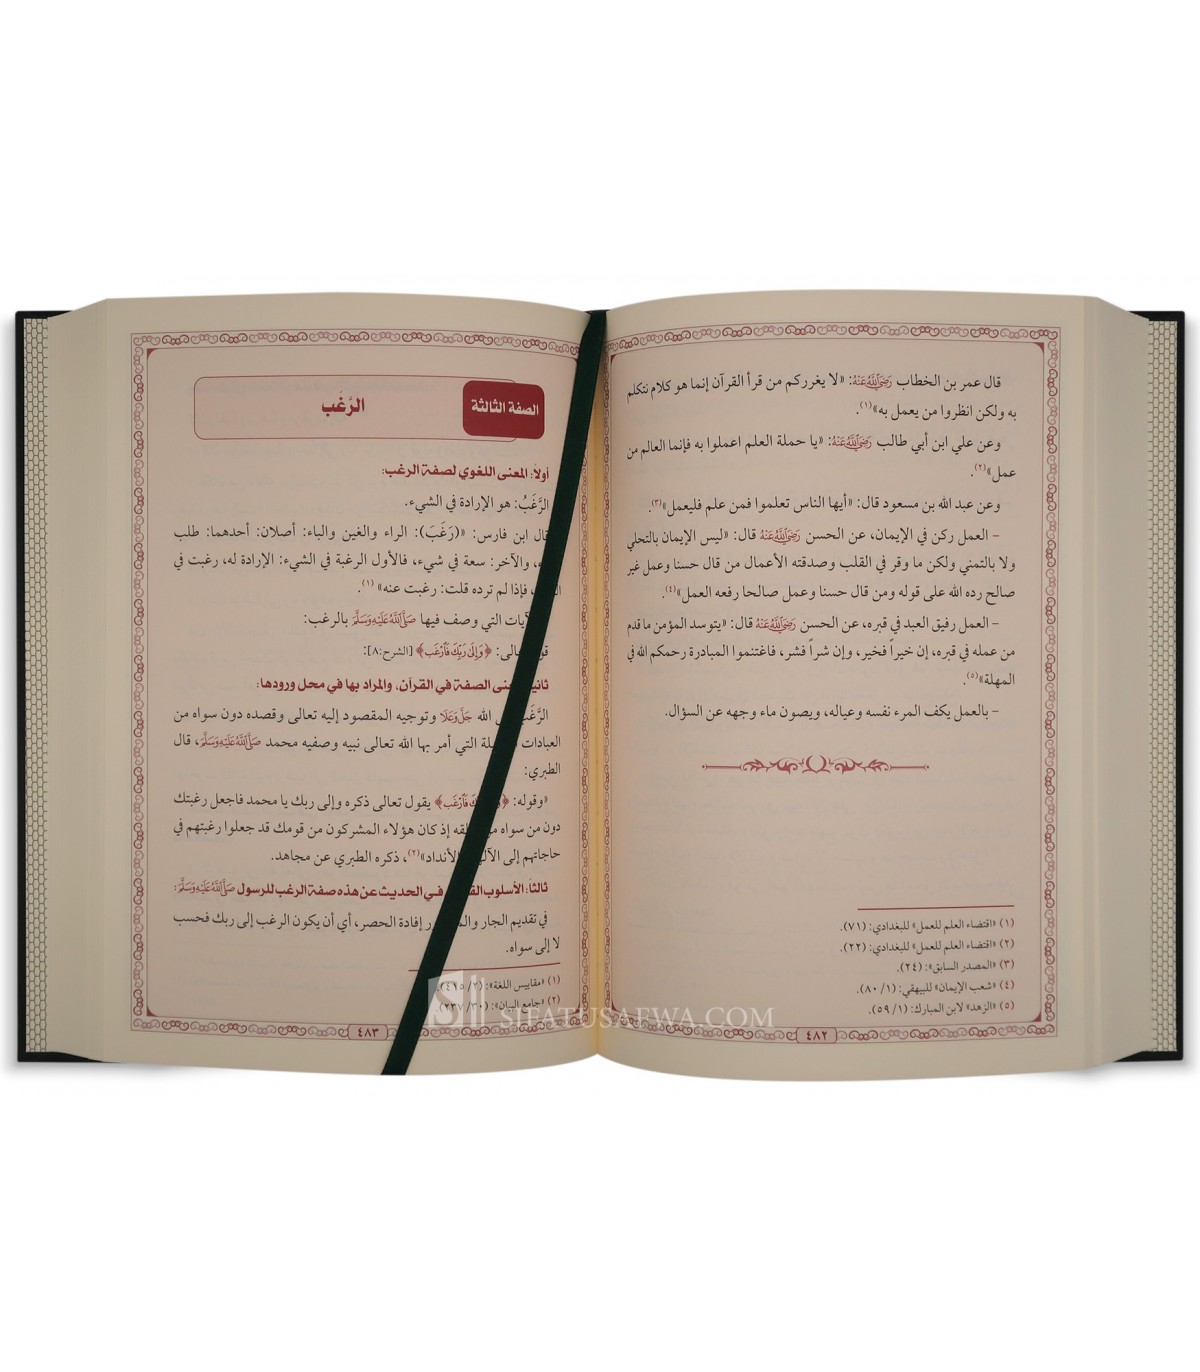 قال عمر بن الخطاب رضي الله عنه: «لا يغرركم من قرأ القرآن إنما هو كلام نتكلم
به ولكن انظروا من يعمل به»(١).
وعن علي ابن أبي طالب رضي الله عنه: «يا حملة العلم اعملوا به فإنما العالم من
عمل»(٢).
وعن عبد الله بن مسعود قال: «أيها الناس تعلموا فمن علم فليعمل»(٣).
- العمل ركن في الإيمان، عن الحسن رضي الله عنه قال: «ليس الإيمان بالتحلي
ولا بالتمني ولكن ما وقر في القلب وصدقته الأعمال من قال حسنا وعمل غير
صالح رده الله على قوله ومن قال حسنا وعمل صالحا رفعه العمل»(٤).
- العمل رفيق العبد في قبره، عن الحسن رضي الله عنه قال: «يتوسد المؤمن ما قدم
من عمله في قبره، إن خيراً فخير، وإن شراً فشر، فاغتنموا المبادرة رحمكم الله في
المهلة»(٥).
- بالعمل يكف المرء نفسه وعياله، ويصون ماء وجهه عن السؤال.
(١) «اقتضاء العلم للعمل» للبغدادي: (٧١).
(٢) «اقتضاء العلم للعمل» للبغدادي: (٢٢).
(٣) «المصدر السابق»: (٢٤).
(٤) «شعب الإيمان» للبيهقي: (١/ ٨٠).
(٥) «الزهد» لابن المبارك: (١/ ٥٩).
٤٨٢
الصفة الثالثة
الرَّغَب
أولاً: المعنى اللغوي لصفة الرغب:
الرَّغَبُ: هو الإرادة في الشيء.
قال ابن فارس: «(رَغَبَ): الراء والغين والباء: أصلان: أحدهما: طلب
والآخر: سعة في شيء، فالأول الرغبة في الشيء: الإرادة له، رغبت في
فإذا لم ترده قلت: رغبت عنه»(١).
الآيات التي وصف فيها صلى الله عليه وسلم بالرغب:
﴿وَإِلَىٰ رَبِّكَ فَٱرْغَب﴾ [الشرح:٨]:
الصفة في القرآن، والمراد بها في محل ورودها:
الله جل وعلا وتوجيه المقصود إليه تعالى وقصده دون سواه من
العبادات التي أمر بها الله تعالى نبيه وصفيه محمد صلى الله عليه وسلم، قال
الطبري:
«وقوله: فَٱرْغَب﴾ يقول تعالى ذكره وإلى ربك يا محمد فاجعل رغبتك
دون من سواه إذ كان هؤلاء المشركون من قومك قد جعلوا رغبتهم في
حاجاتهم إلى الأنداد»(٢)، ذكره الطبري عن مجاهد.
ثالثاً: الأسلوب في الحديث عن هذه صفة الرغب للرسول صلى الله عليه وسلم:
في تقديم الجار إفادة الحصر، أي أن يكون الرغب إلى ربك فحسب
لا إلى سواه.
(١) «مقاييس اللغة»: (٢/ ٤١٥).
(٢) «جامع البيان»:
٤٨٣
SIFATUSAFWA.COM